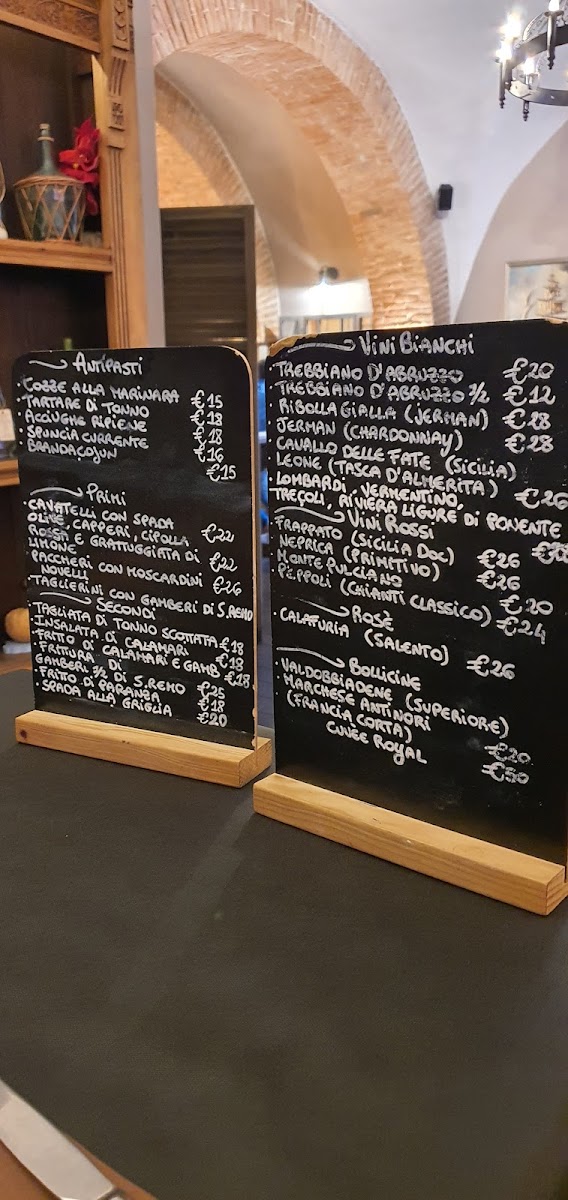 ANTIPASTI
· COZZE ALLA MARINARA €15
· TARTARE DI TONNO €18
· ACCIUGHE RIPIENE €18
· SPUNCIA CURRENTE €16
· BRANDACOJUN €15
PRIMI
CAVATELLI CON SPADA
OLIVE, CAPPERI, CIPOLLA €22
ROSSA E GRATTUGGIATA DI
LIMONE €22
· PACCHERI CON MOSCARDINI
NOVELLI €26
· TAGLIERINI CON GAMBERI DI S.REMO
SECONDI
· TAGLIATA DI TONNO SCOTTATA €18
· INSALATA DI CALAMARI €18
· FRITTO DI CALAMARI E GAMB €18
· FRITURA DI
GAMBERI 1/2 DI S.REMO €25
· FRITTO DI PARANZA €18
· SPADA ALLA GRIGLIA €20
VINI BIANCHI
· TREBBIANO D'ABRUZZO €20
· TREBBIANO D'ABRUZZO 1/2 €12
· RIBOLLA GIALLA (JERMAN) €28
· JERMAN (CHARDONNAY) €28
· CAVALLO DELLE FATE (SICILIA)
· LEONE (TASCA D'ALMERITA) €26
· LOMBARDI, VERMENTINO,
TREÇOLI, RIVIERA LIGURE DI PONENTE
VINI ROSSI
· FRAPPATO (SICILIA DOC) €26
· NEPRICA (PRIMITIVO) €26
· MONTE PULCIANO €20
· PÈPPOLI (CHIANTI CLASSICO) €24
ROSÈ
· CALAFURIA (SALENTO) €26
BOLLICINE
· VALDOBBIADENE (SUPERIORE)
· MARCHESE ANTINORI €20
(FRANCIA CORTA)
CUVÈE ROYAL €50